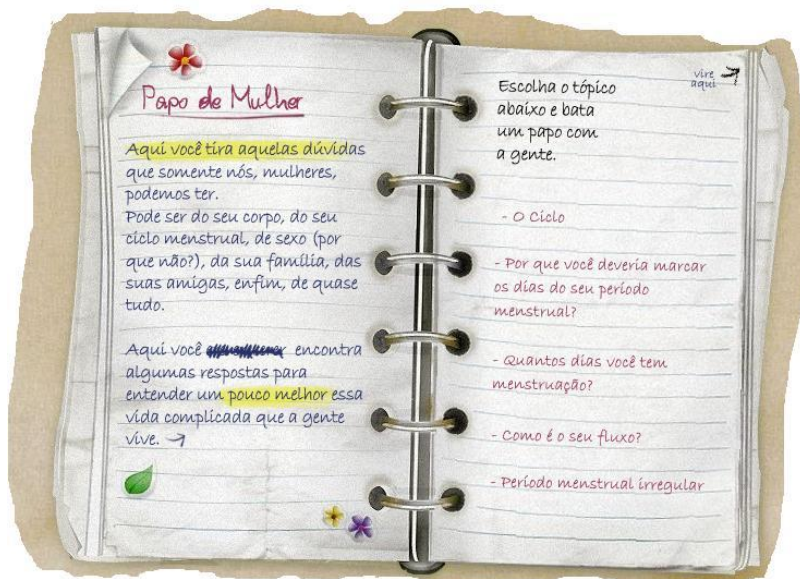 Papo de Mulher
Aqui você tira aquelas dúvidas
que somente nós, mulheres,
podemos ter.
Pode ser do seu corpo, do seu
ciclo menstrual, de sexo (por
que não?), da sua família, das
suas amigas, enfim, de quase
tudo.
Aqui você encontra
algumas respostas para
entender um pouco melhor essa
vida complicada que a gente
vive.
vire
aqui
Escolha o tópico
abaixo e bata
um papo com
a gente.
- O Ciclo
- Por que você deveria marcar
os dias do seu período
menstrual?
- Quantos dias você tem
menstruação?
- Como é o seu fluxo?
- Período menstrual irregular